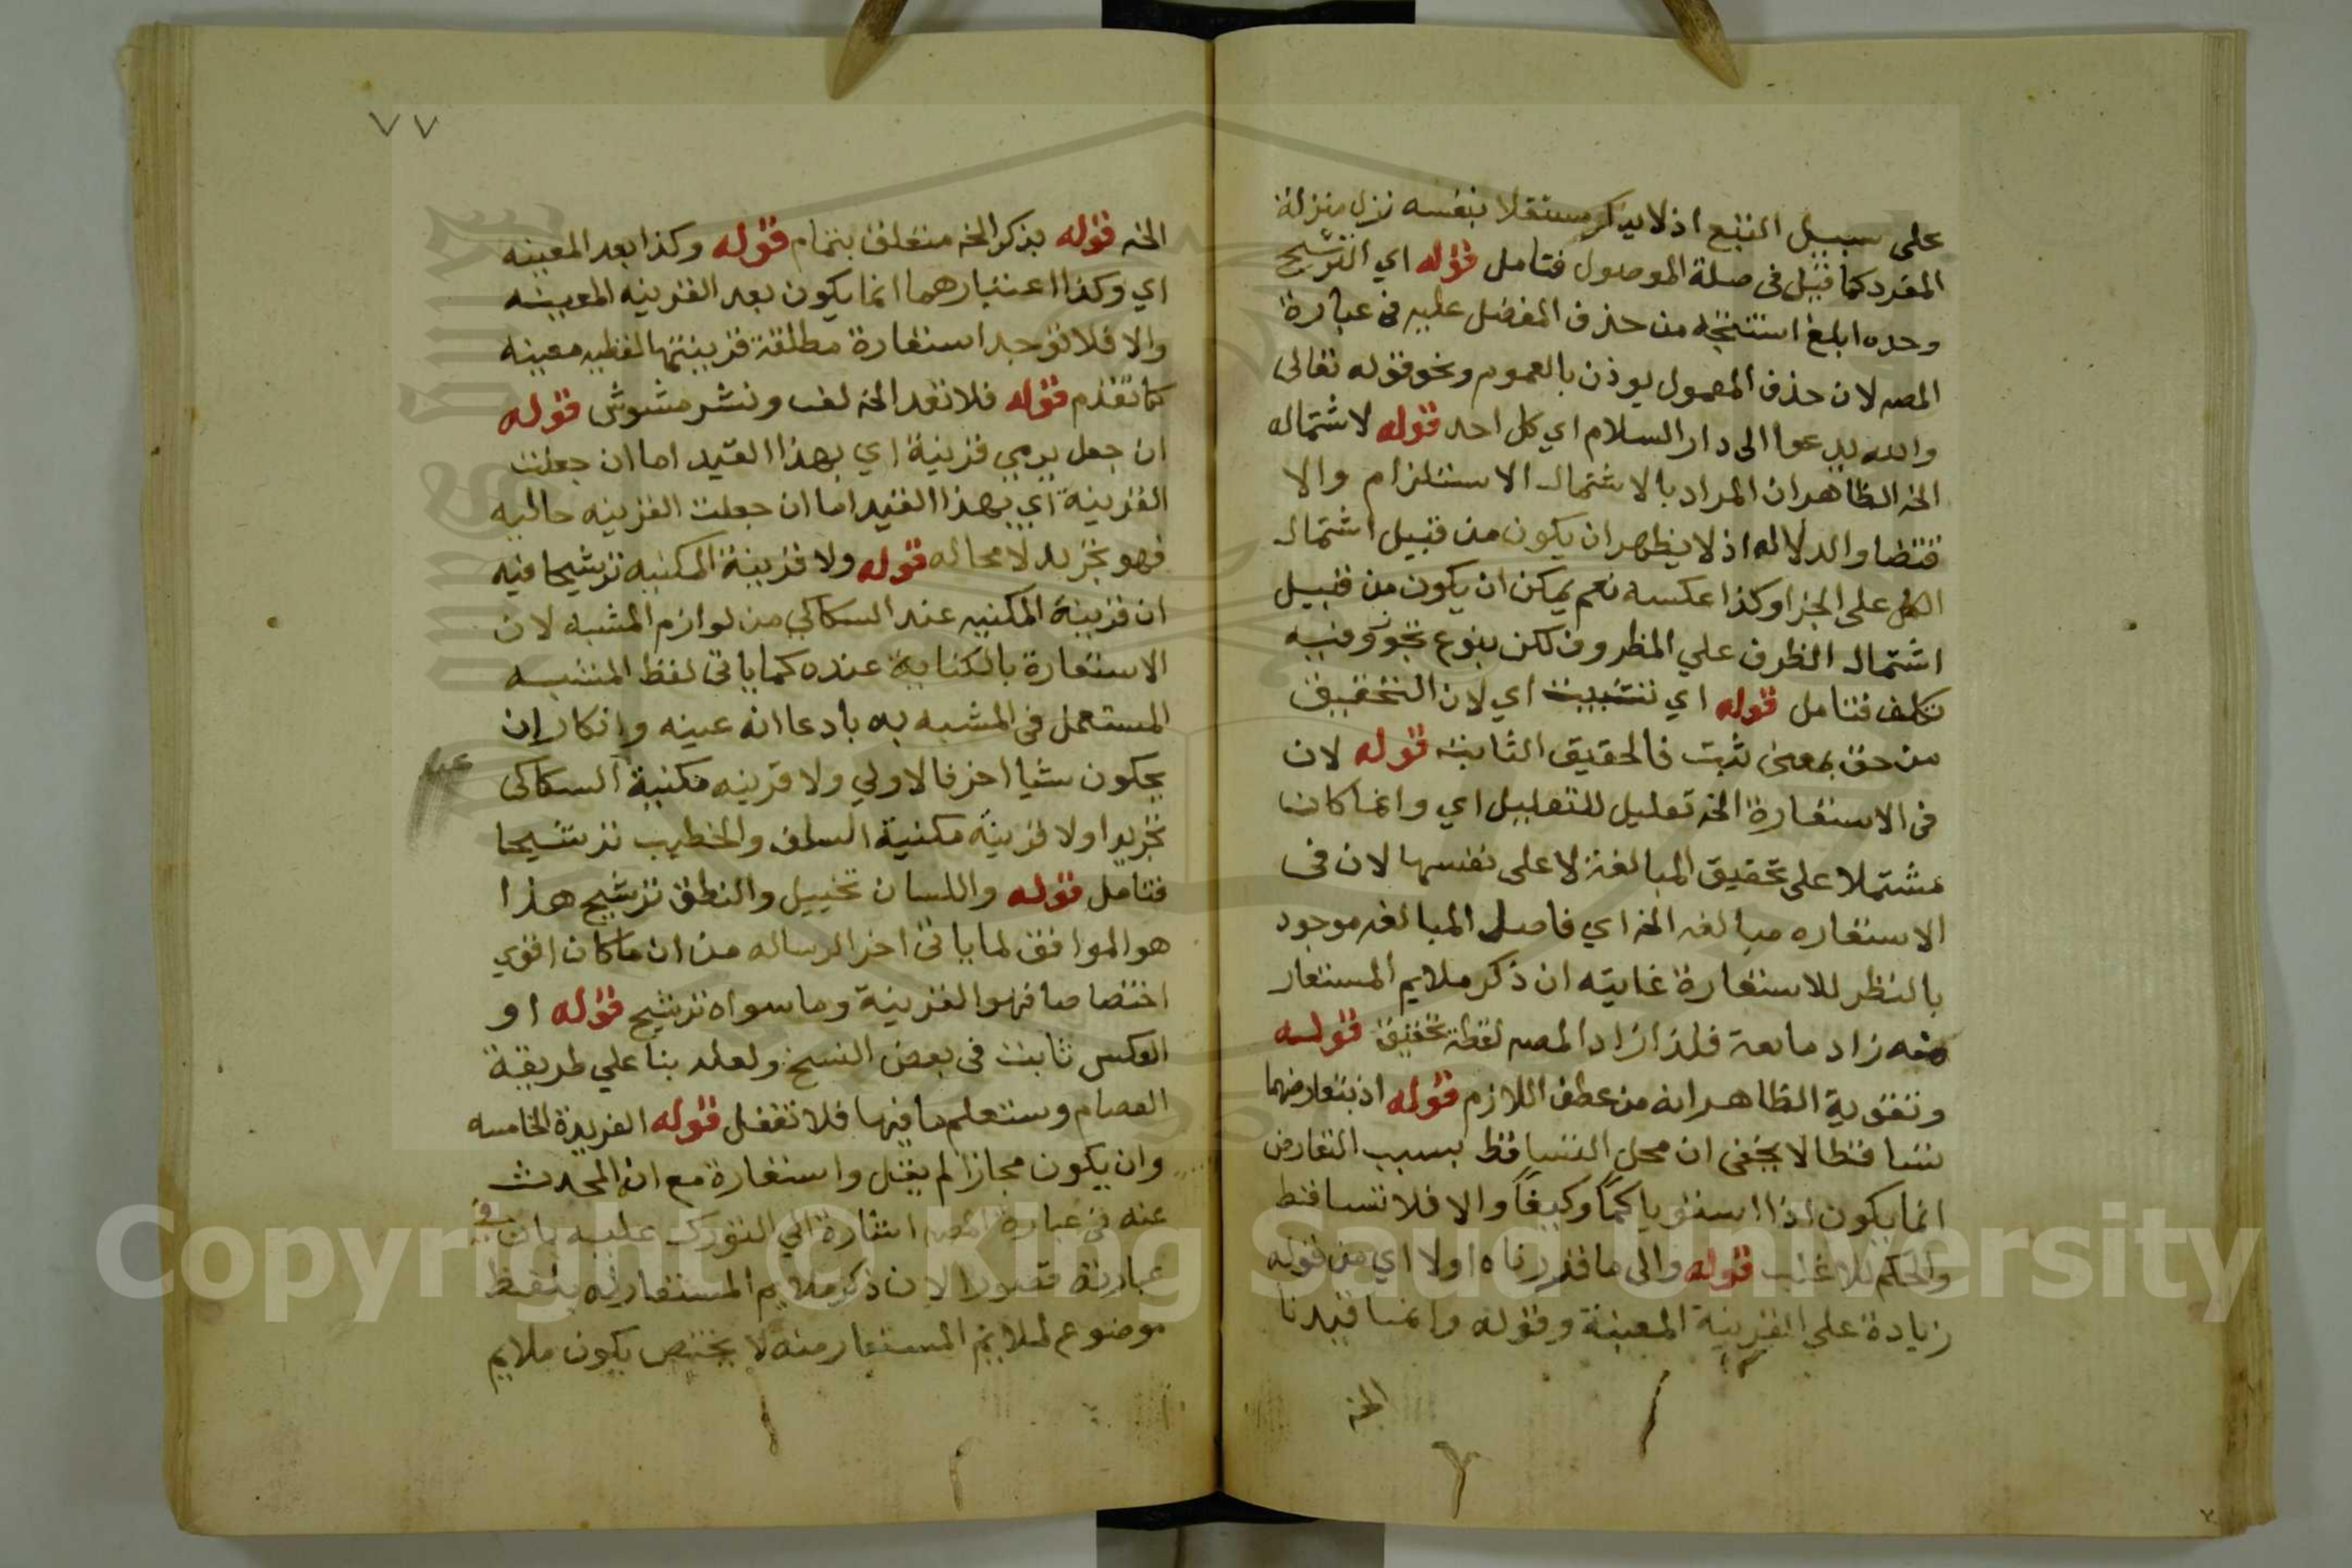 على سبيل التبع اذ لا يذكر مستقلا بنفسه نزل منزلة
المفرد كما قيل في صلة الموصول فتامل قوله اي الترشيح
وحده ابلغ استنتجه من حذف المفضل عليه في عبارة
المصه لان حذف المعمول يوذن بالعموم ونحو قوله تعالى
والله يدعوا الى دار السلام اي كل احد قوله لاشتماله
الخه الظاهر ان المراد بالاشتمال الاستلزام والا
قتضا والدلاله اذ لا يظهر ان يكون من قبيل اشتمال
الكل على الجزا وكذا عكسه نعم يمكن ان يكون من قبيل
اشتمال الظرف علي المظروف لكن بنوع تجوز وفيه
تكلف فتامل قوله اي تثبيت اي لان التحقيق
من حق بمعنى ثبت فالحقيق الثابته قوله لان
في الاستعارة الخه تعليل للتعليل اي وانما كان
مشتملا على تحقيق المبالغة لا على نفسها لان في
الاستعاره مبالغه الخه اي فاصل المبالغه موجود
بالنظر للاستعارة غايته ان ذكر ملايم المستعار
منه زاد مانعة فلذا زاد المصه لفظة تحقيق قوله
وتقوية الظاهر انه من عطف اللازم قوله اذ بتعارضهما
تساقطا لا يخفى ان محل التساقط بسبب التعارض
انما يكون اذا استويا كمّاً وكيفاً والا فلا تساقط
والحكم للاغلب قوله والى ما قدرناه اولا اي من قوله
زيادة علي القرينة المعينة وقوله وانما قيدنا
الخه
٧٧
الخه قوله بذكر الخه متعلق بتمام قوله وكذا بعد المعينه
اي وكذا اعتبارهما انما يكون بعد القرينه المعينه
والا فلا توجد استعارة مطلقة قرينتها لفظيه معينه
كما تقدم قوله فلا تعد الخه لف ونشر مشوش قوله
ان جعل يرمي قرينة اي بهذا القيد اما ان جعلت
القرينة اي بهذا القيد اما ان جعلت القرينه حاليه
فهو تجريد لا محاله قوله ولا قرينة المكنيه ترشيحا فيه
ان قرينة المكنيه عند السكاكي من لوازم المشبه لان
الاستعارة بالكناية عنده كما ياتي لفظ المشبه
المستعمل في المشبه به بادعا انه عينه وانكار ان
يكون شيا اخر فالاولي ولا قرينه مكنية السكاكى
تجريدا ولا قرينة مكنية السلف والخطيب ترشيحا
فتامل قوله واللسان تخييل والنطق ترشيح هذا
هو الموافق لما ياتي اخر الرساله من ان ما كان اقوي
اختصاصا فهو القرينة وما سواه ترشيح قوله او
العكس ثابت في بعض النسخ ولعله بنا علي طريقة
العصام وستعلم ما فيها فلا تغفل قوله الفريدة الخامسه
وان يكون مجازا لم يقل واستعارة مع انه المحدث
عنه في عبارة المصه اشارة الي التورك عليه بان في
عبارته قصورا لان ذكر ملايم المستعار له بلفظ
موضوع لملايم المستعار منه لا يختص بكون ملايم
Copyright © King Saud University